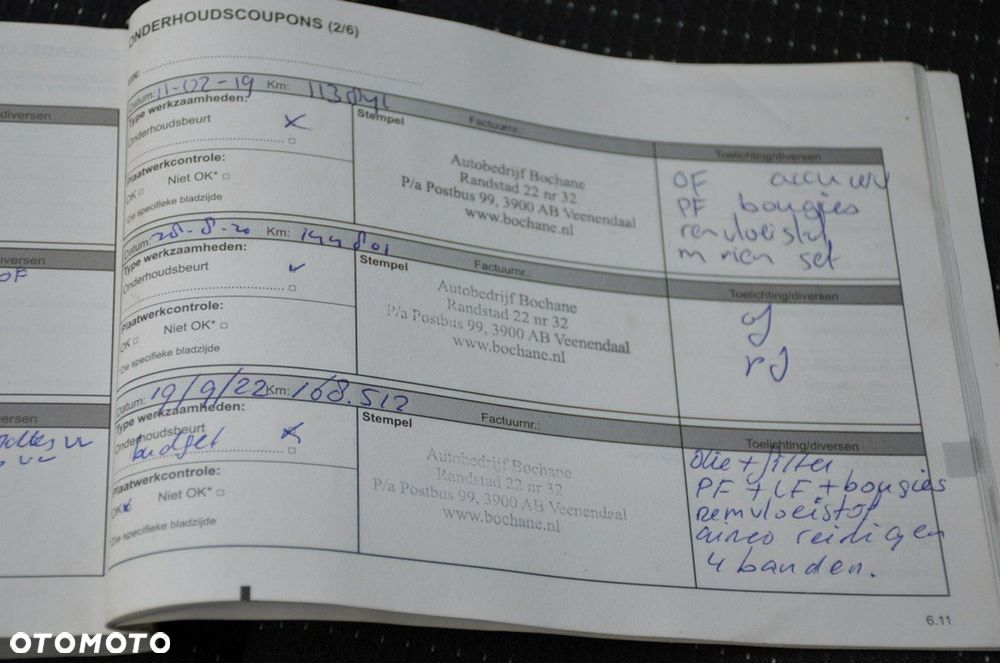 diversen
diversen
OF
ersen
ONDERHOUDSCOUPONS (2/6)
VIN:
Datum: 11-02-19 Km: 113
Type werkzaamheden:
Onderhoudsbeurt x
Plaatwerkcontrole:
OK □ Niet OK* □
*Zie specifieke bladzijde
Stempel
Factuurnr.:
Autobedrijf Bochane
Randstad 22 nr 32
P/a Postbus 99, 3900 AB Veenendaal
www.bochane.nl
Toelichting/diversen
OF
PF bougies
remvloeistof
set
Datum: 28-8-20 Km: 144801
Type werkzaamheden:
Onderhoudsbeurt ✓
Plaatwerkcontrole:
OK □ Niet OK* □
*Zie specifieke bladzijde
Stempel
Factuurnr.:
Autobedrijf Bochane
Randstad 22 nr 32
P/a Postbus 99, 3900 AB Veenendaal
www.bochane.nl
Toelichting/diversen
of
Datum: 19/9/22 Km: 168.512
Type werkzaamheden:
Onderhoudsbeurt x
budget
Plaatwerkcontrole:
OK x Niet OK* □
*Zie specifieke bladzijde
Stempel
Factuurnr.:
Autobedrijf Bochane
Randstad 22 nr 32
P/a Postbus 99, 3900 AB Veenendaal
www.bochane.nl
Toelichting/diversen
olie + filter
PF + LF + bougies
remvloeistof
airco reinigen
4 banden.
6.11
OTOMOTO